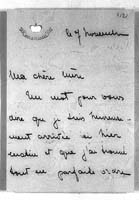 le 7 novembre
Ma chère mère
Un mot pour vous
dire que je suis heureuse-
ment arrivée ici hier
matin et que j'ai trouvé
tout en parfaite ordre